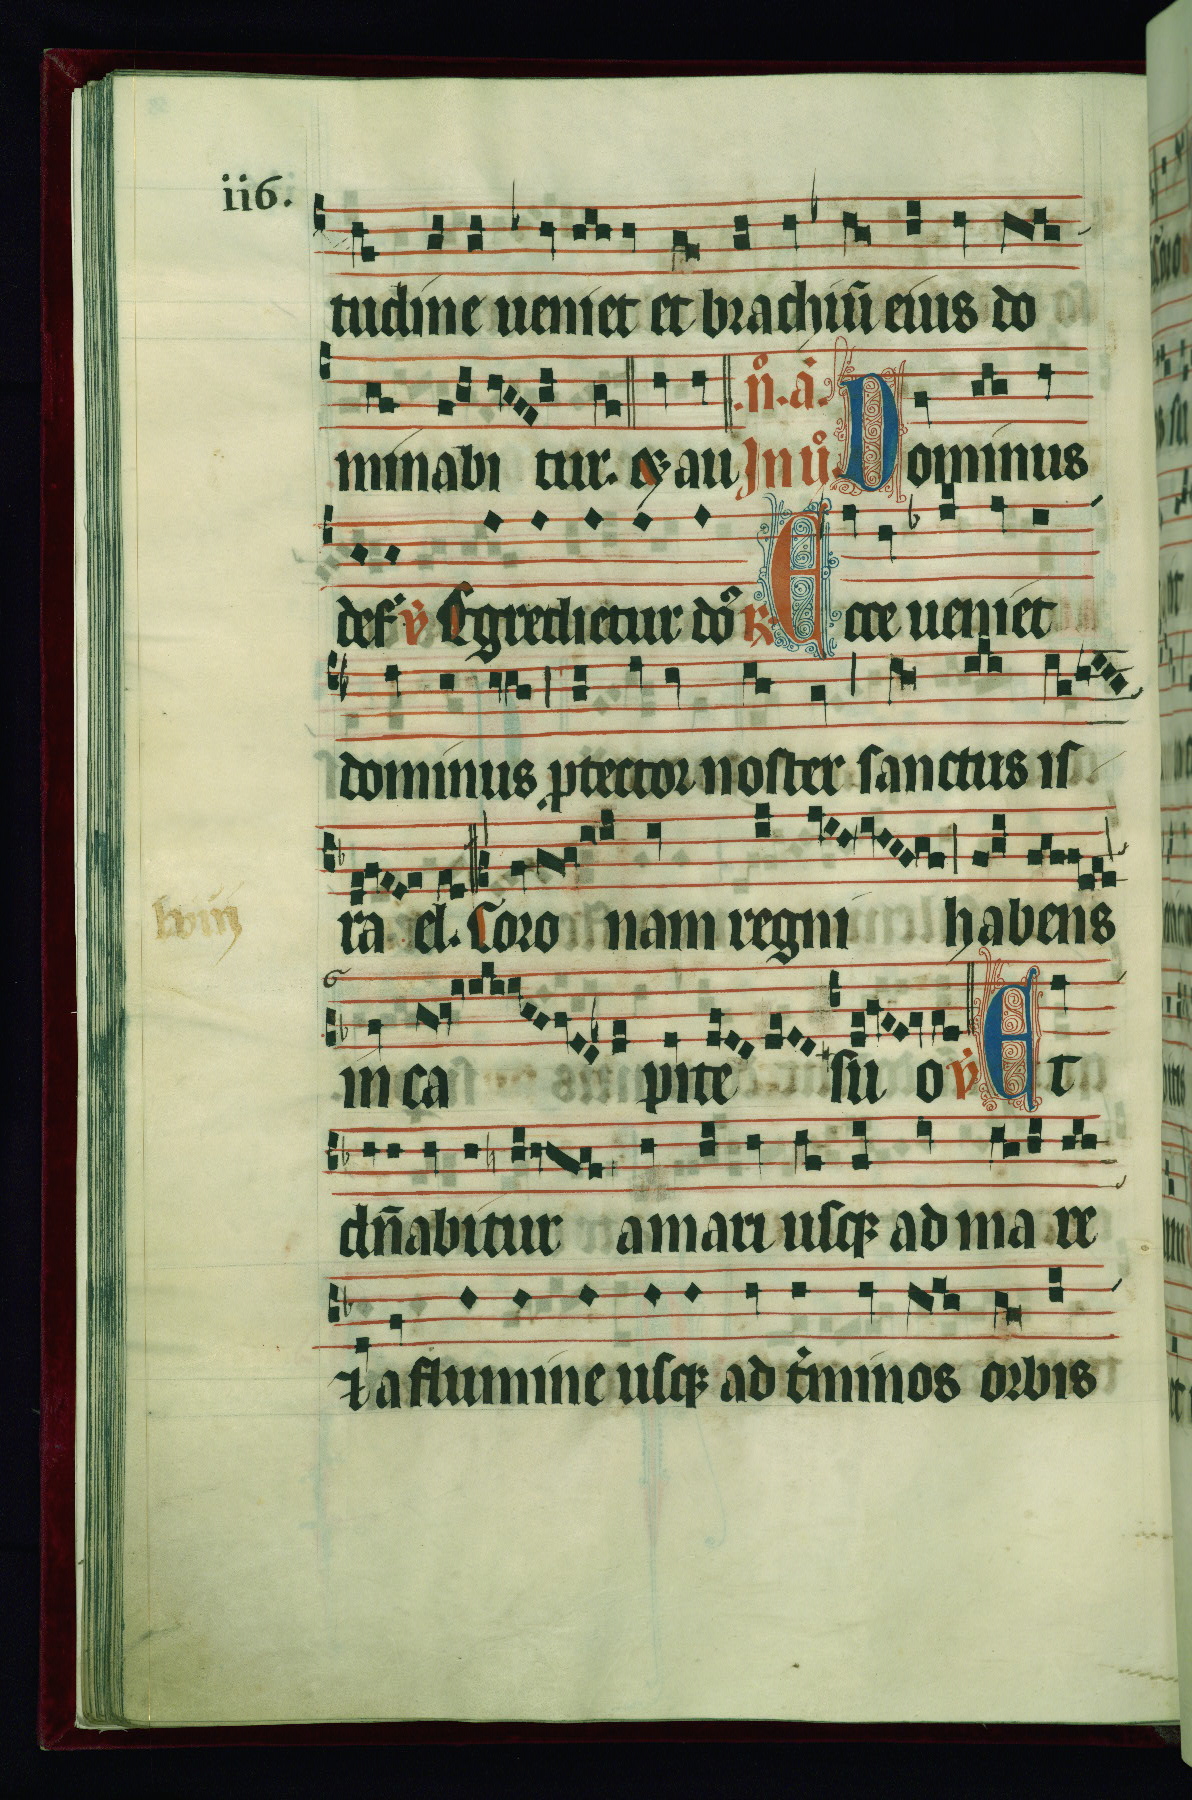 ii6.
tudine ueniet et brachiū eius do
minabi tur. & au In iiº. n̊. a̓. Dominus
def̓ ℣ Egredietur dō ℟. Ecce ueniet
dominus ꝓtector noster sanctus is
ra el. Coro nam regni habens
lviiij
in ca pite su o ℣ Et
dn̄abitur a mari usqꝫ ad ma re
⁊ a flumine usqꝫ ad t̓minos orbis